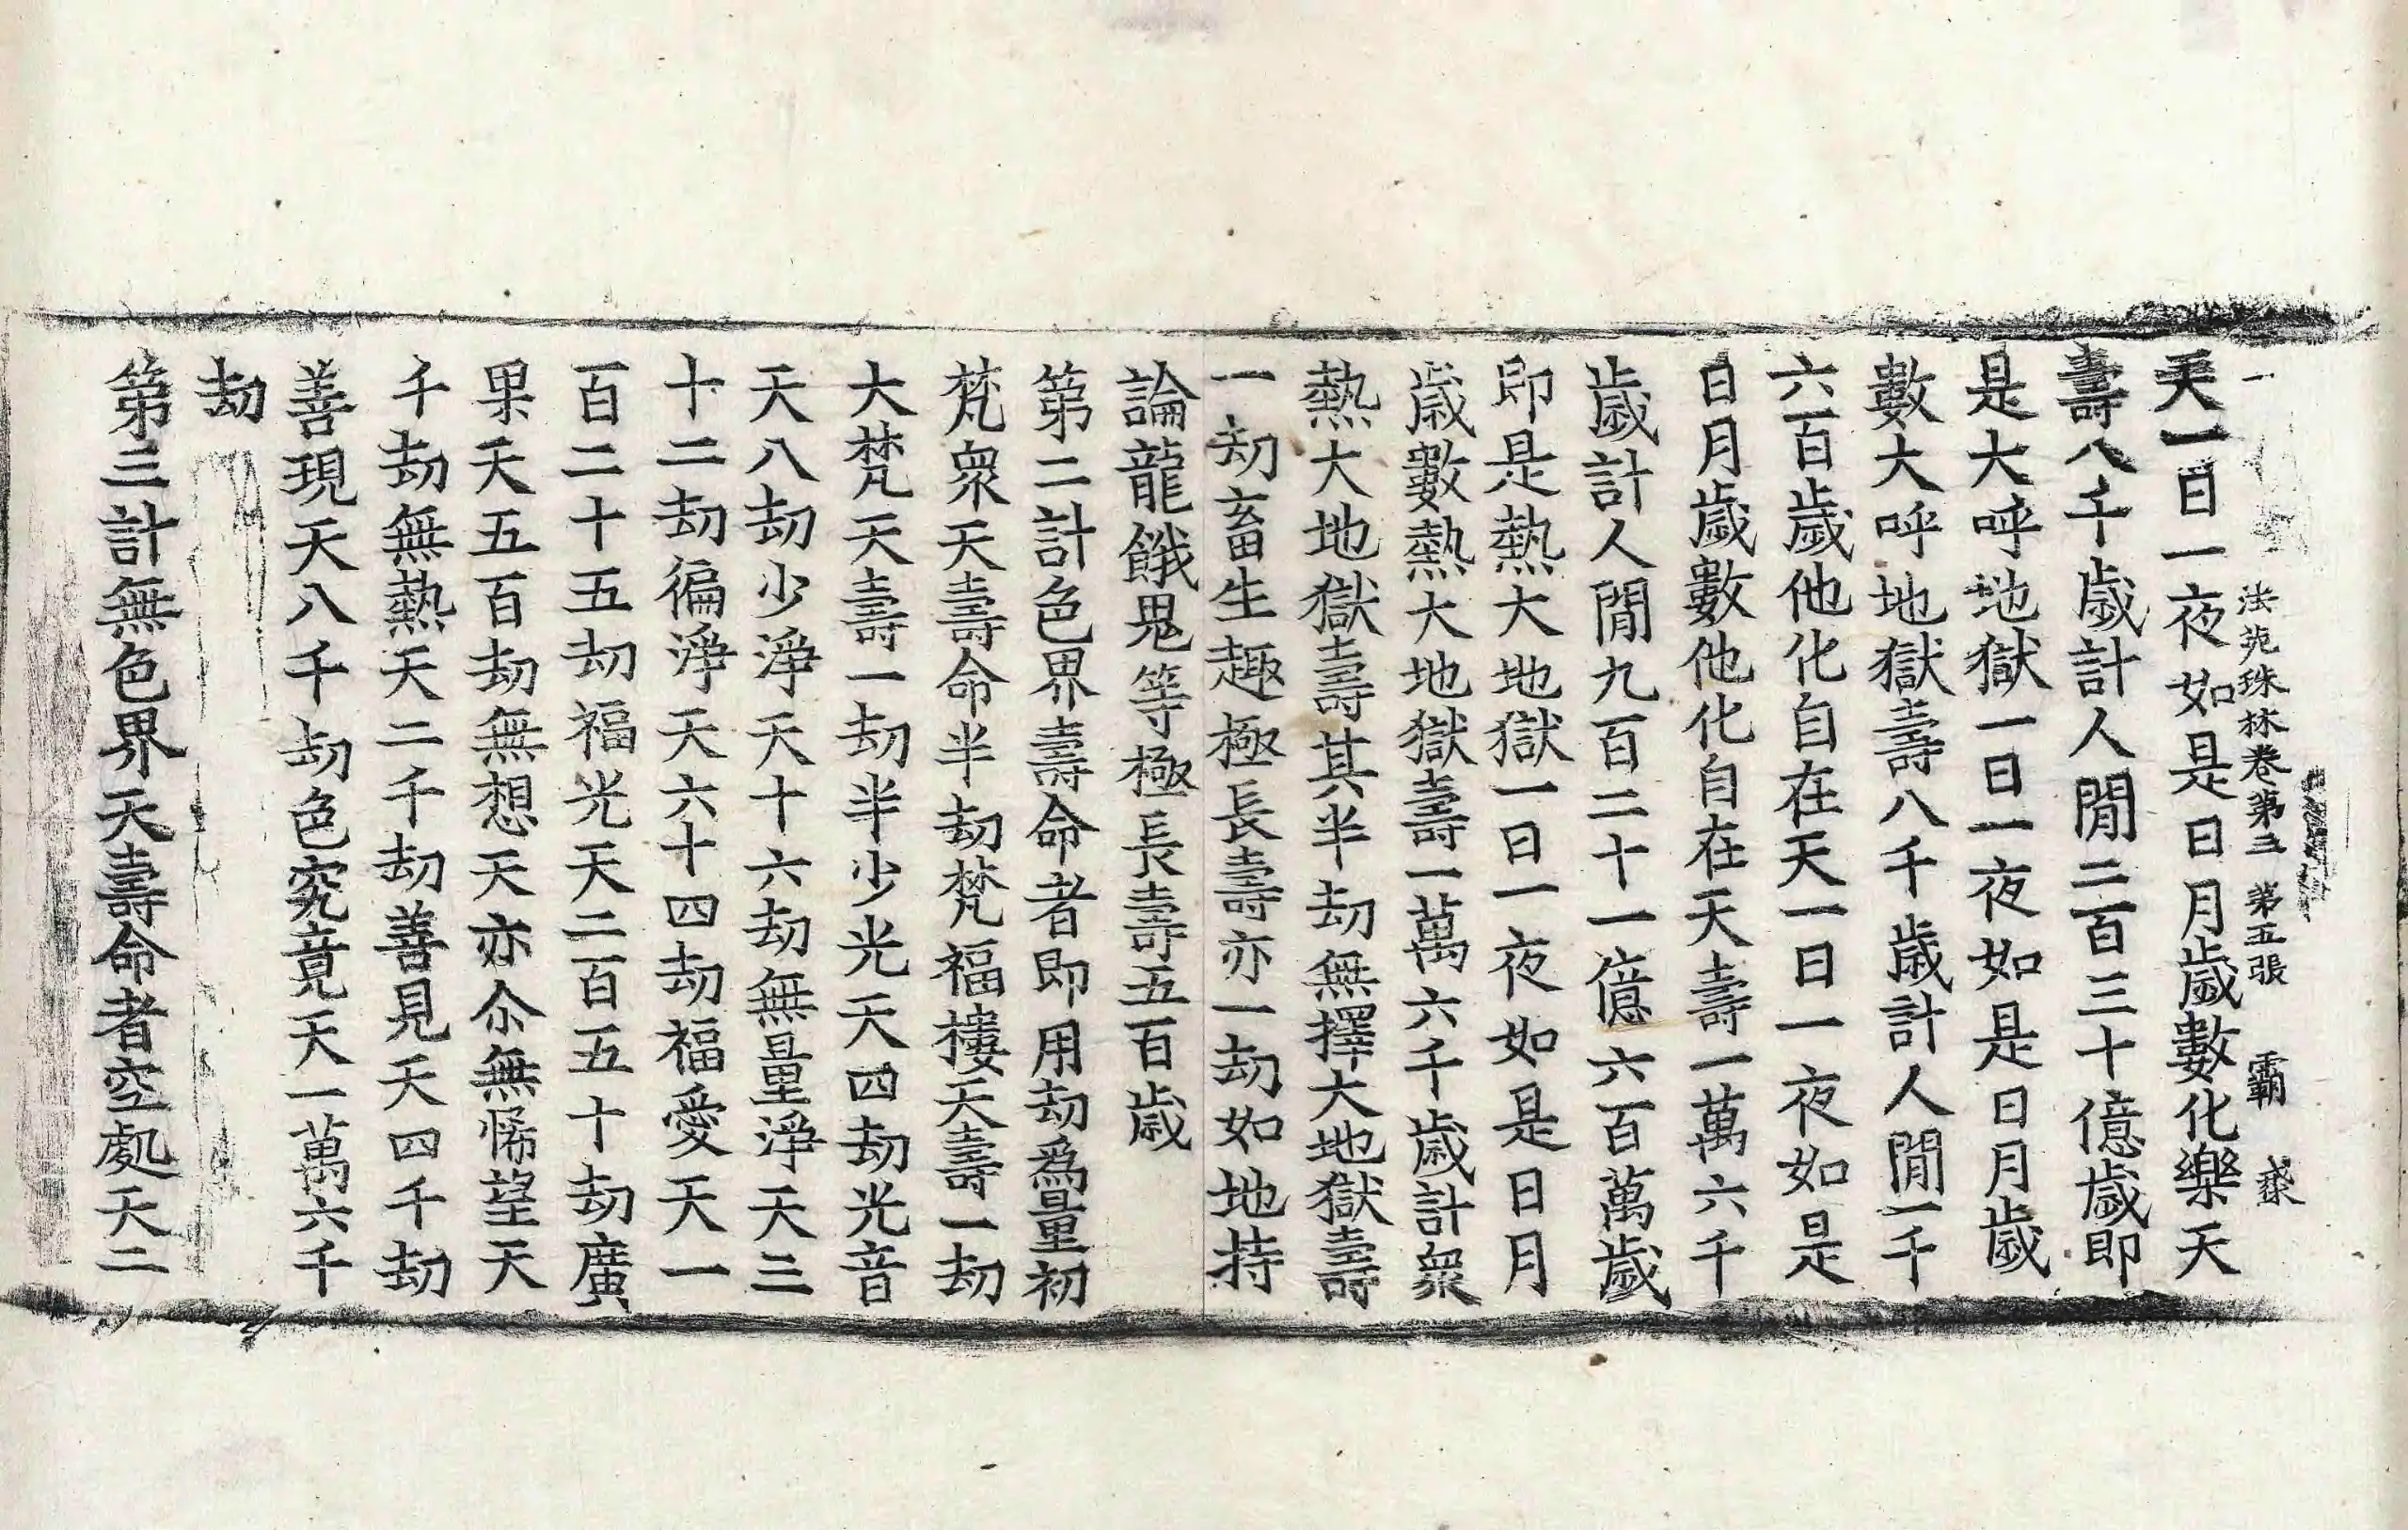 法苑珠林卷第三 第五張 霸
天一日一夜如是日月歲數化樂天
壽八千歲計人閒二百三十億歲即
是大呼地獄一日一夜如是日月歲
數大呼地獄壽八千歲計人閒一千
六百歲他化自在天一日一夜如是
日月歲數他化自在天壽一萬六千
歲計人閒九百二十一億六百萬歲
即是熱大地獄一日一夜如是日月
歲數熱大地獄壽一萬六千歲計衆
熱大地獄壽其半劫無擇大地獄壽
一劫畜生趣極長壽亦一劫如地持
論龍餓鬼等極長壽五百歲
第二計色界壽命者即用劫爲量初
梵衆天壽命半劫梵福樓天壽一劫
大梵天壽一劫半少光天四劫光音
天八劫少淨天十六劫無量淨天三
十二劫徧淨天六十四劫福愛天一
百二十五劫福光天二百五十劫廣
果天五百劫無想天亦尒無悕望天
千劫無熱天二千劫善見天四千劫
善現天八千劫色究竟天一萬六千
劫
第三計無色界天壽命者空處天二